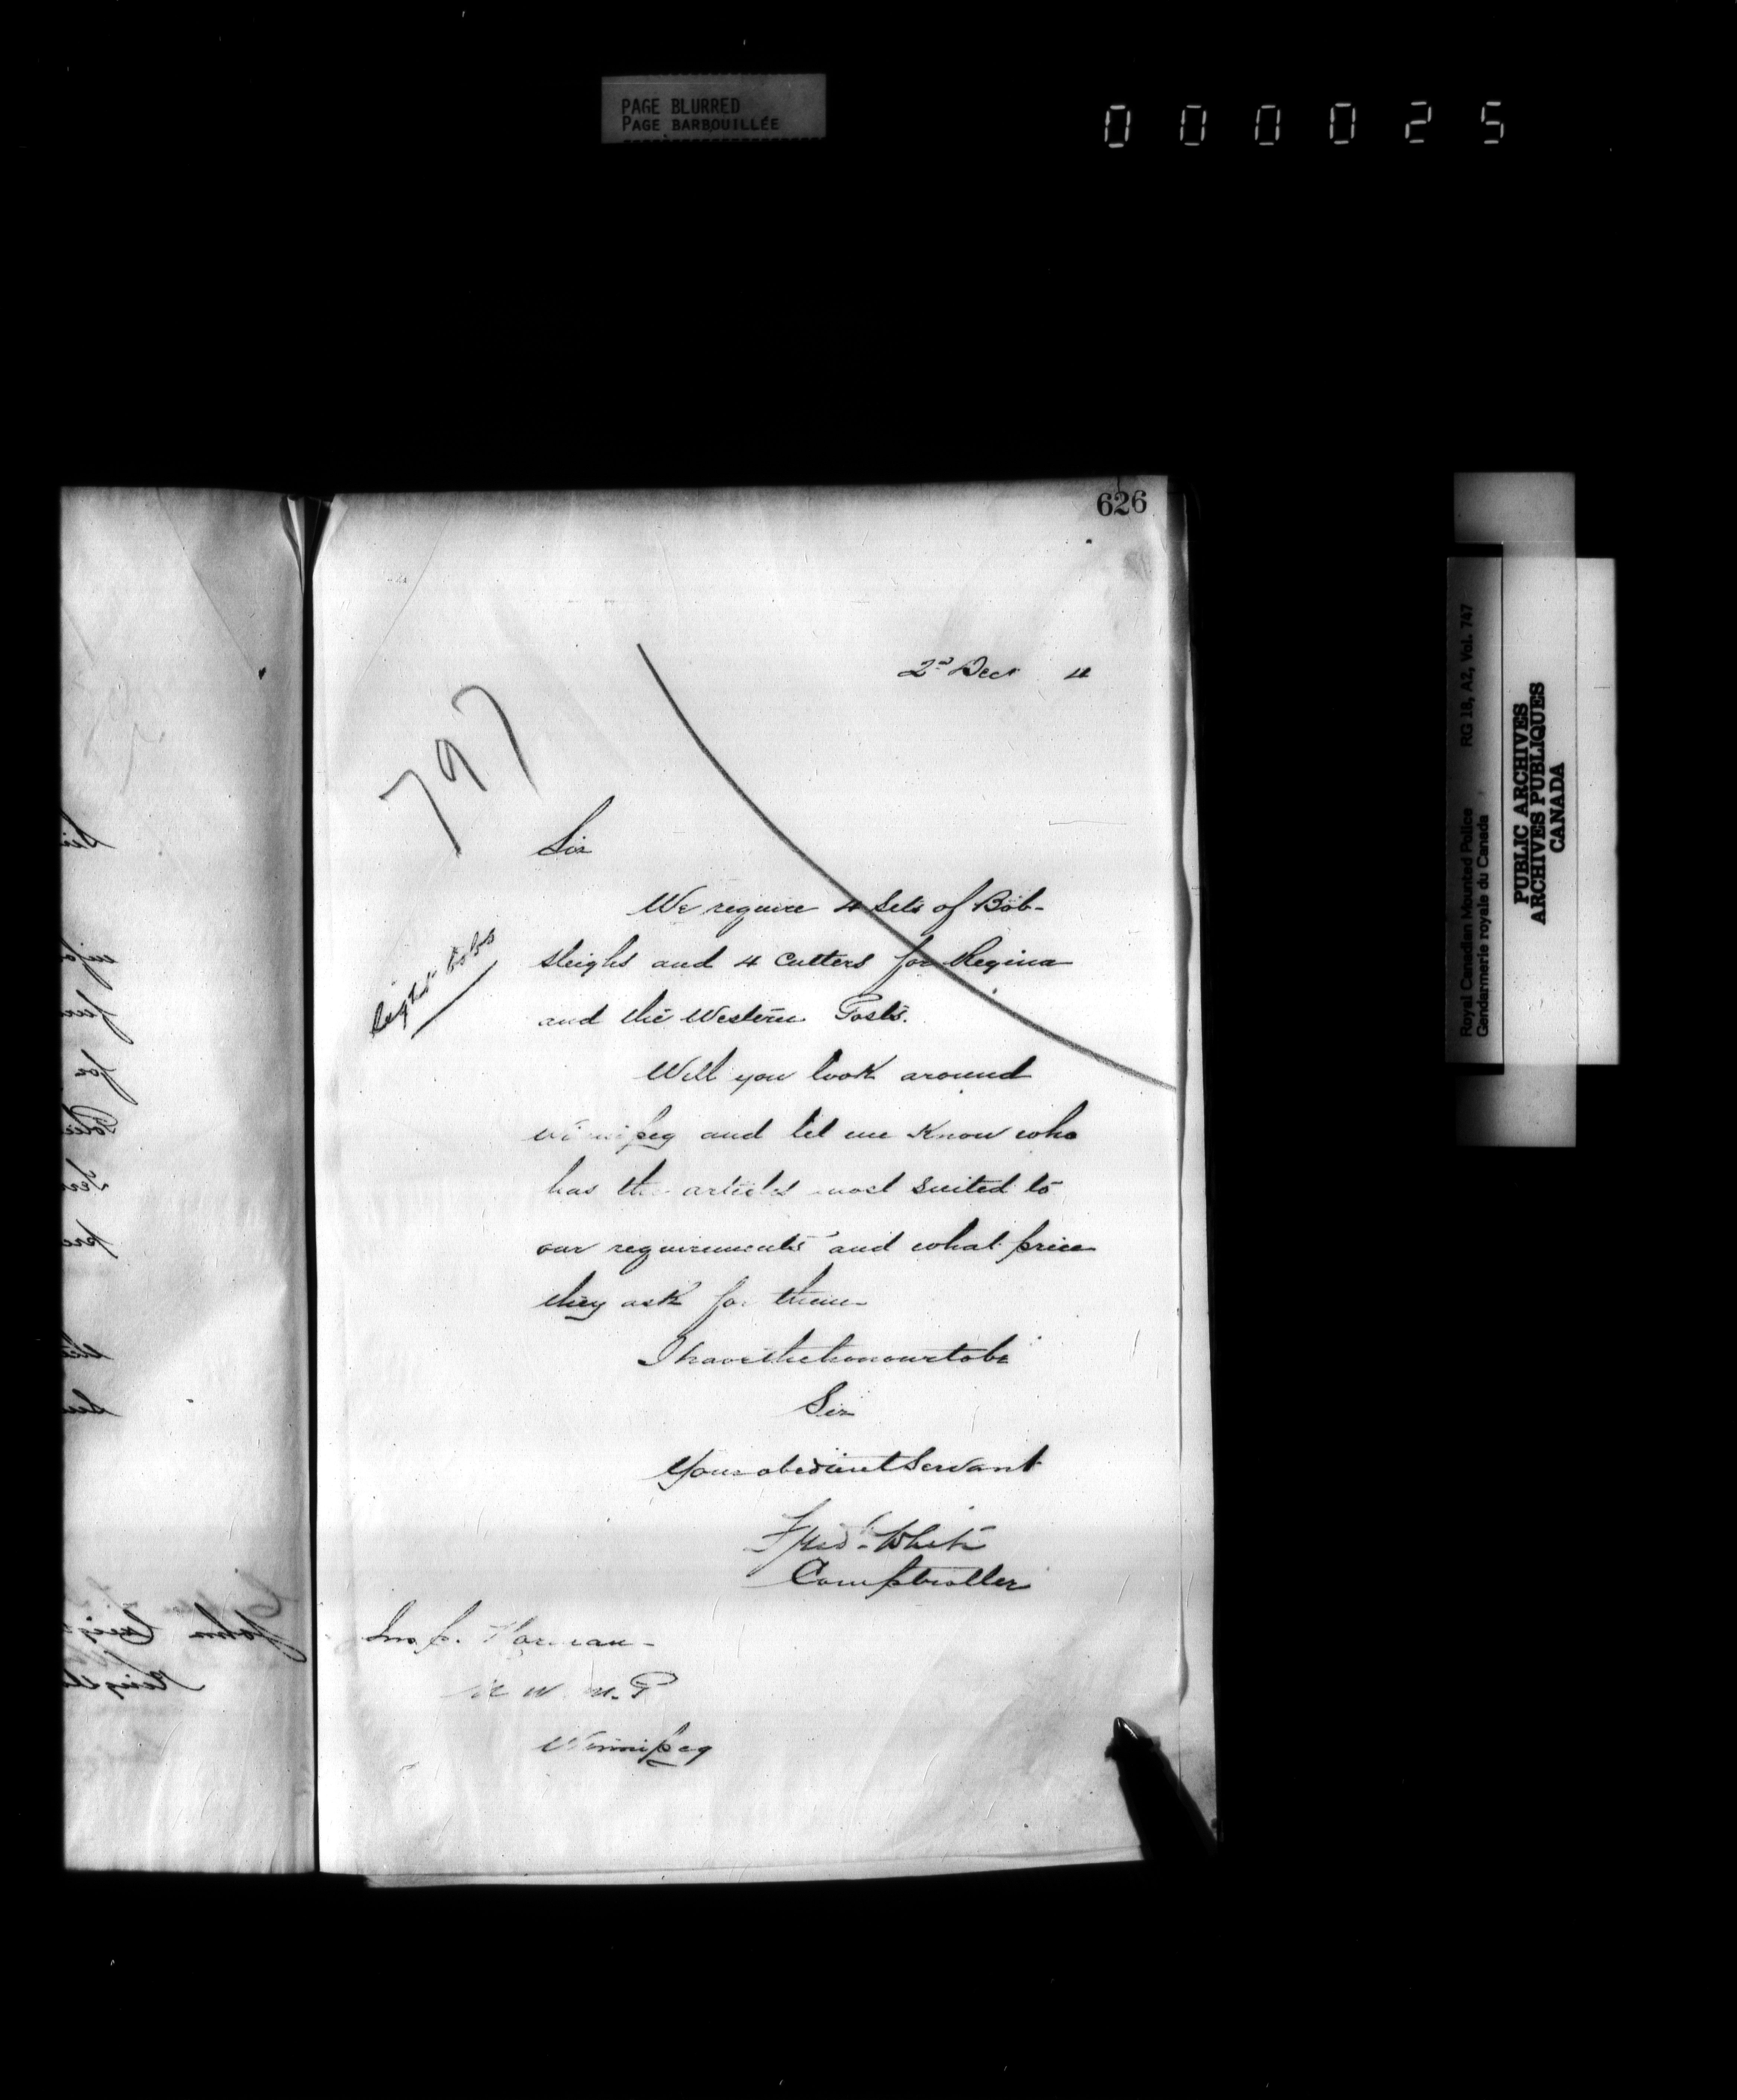 PAGE BLURRED
PAGE BARBOUILLÉE
000025
626
2nd Decr 4
797
Sir
We require 4 Sets of Bob-
sleighs and 4 Cutters for Regina
light bobs
and the Western Posts.
Will you look around
Winnipeg and let me Know who
has the articles most suited to
our requirements and what price
they ask for them
I have the honour to be
Sir
Your obedient Servant
Fred. White
Comptroller
Insp.
N. W. M. P
Winnipeg
John
Royal Canadian Mounted Police RG 18, A2, Vol. 747
Gendarmerie royale du Canada
PUBLIC ARCHIVES
ARCHIVES PUBLIQUES
CANADA